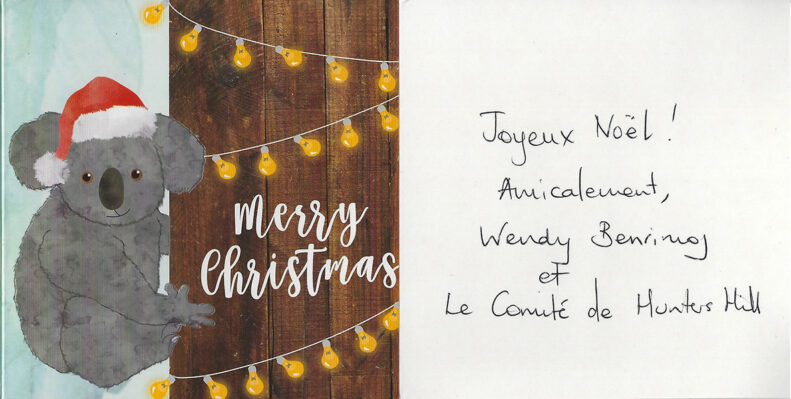 Merry
Christmas
Joyeux Noël !
Amicalement,
Wendy Benrimoj
et
Le Comité de Hunters Hill